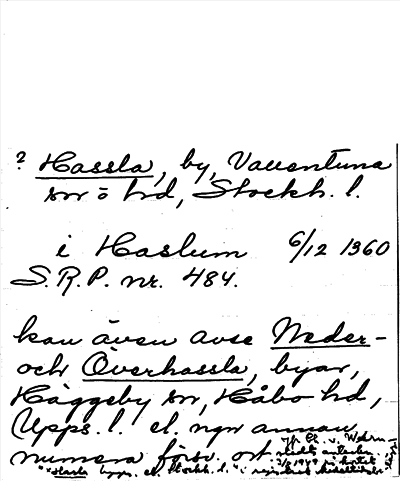 ? Hassla, by, Vallentuna
sn o hd, Stockh. l.
i Haslum 6/12 1360
S.R.P. nr. 484.
kan även avse Neder-
och Överhassla, byar,
Häggeby sn, Håbo hd,
Upps. l. el. ngn annan
numera försv. ort